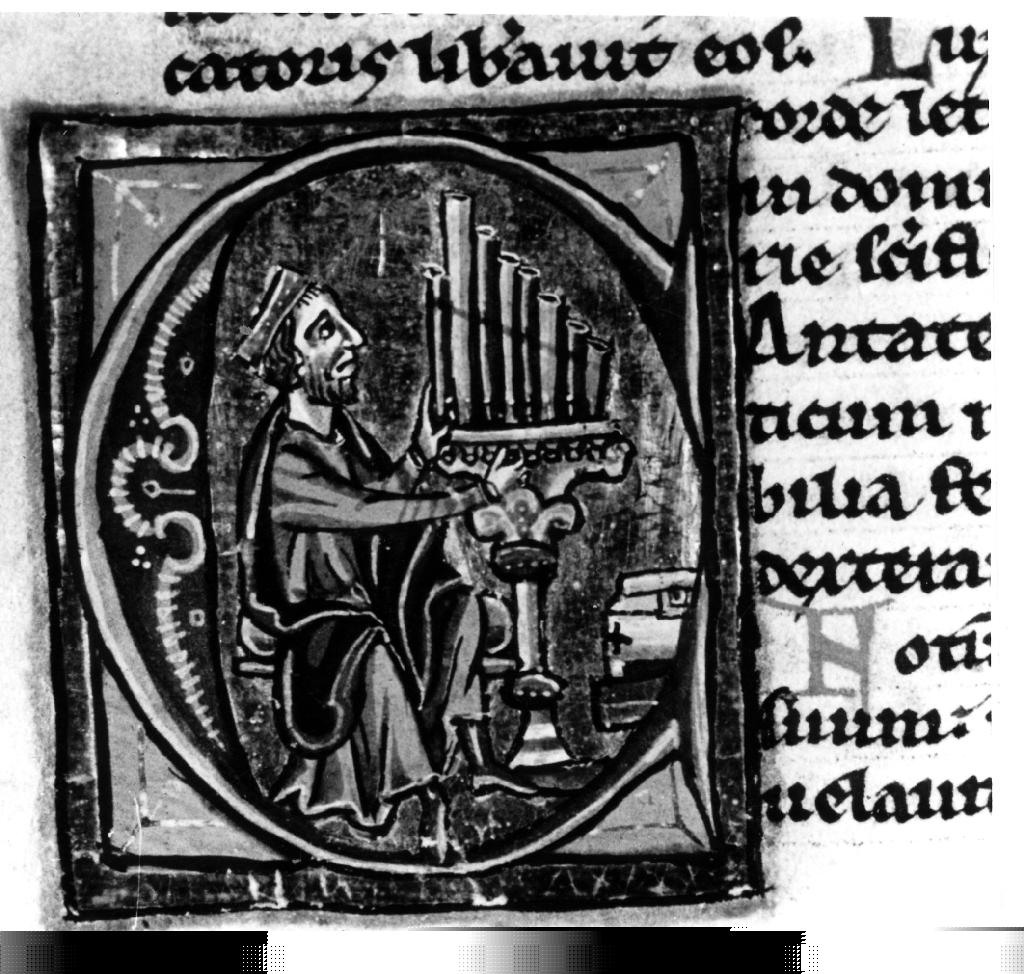 catoris lib'auit eos. Lu
corde let
in domi
rie sc̄ifi
CAntate
ticum
bilia fe
dextera
Notū
suum:
uelauit